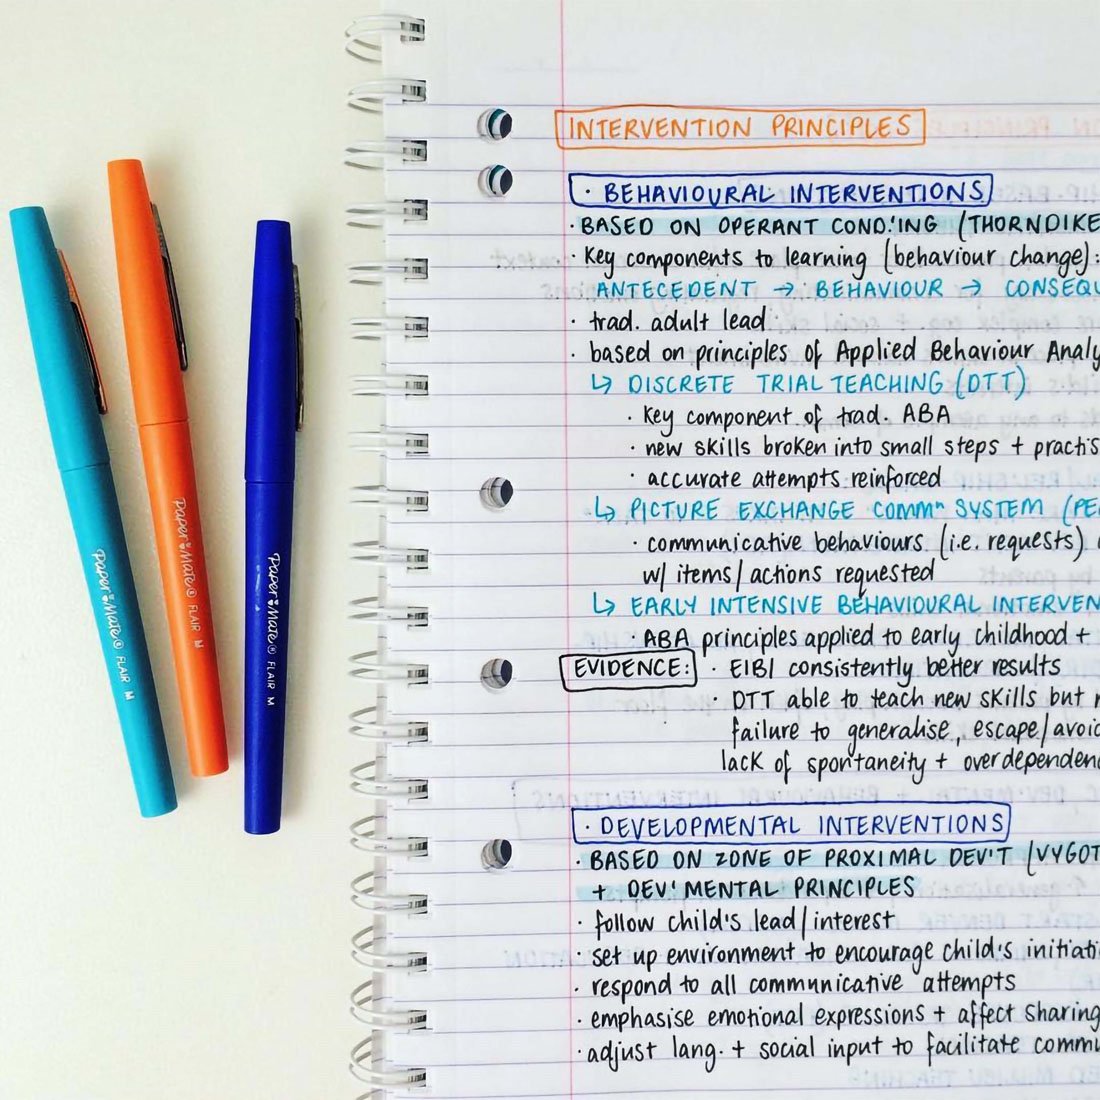 INTERVENTION PRINCIPLES
· BEHAVIOURAL INTERVENTIONS
· BASED ON OPERANT COND.'ING (THORNDIKE
· Key components to learning (behaviour change):
ANTECEDENT → BEHAVIOUR → CONSEQU
· trad. adult lead
· based on principles of Applied Behaviour Analy
↳ DISCRETE TRIAL TEACHING (DTT)
· Key component of trad. ABA
· new skills broken into small steps + practis
· accurate attempts reinforced
↳ PICTURE EXCHANGE COMMⁿ SYSTEM (PE
· communicative behaviours (i.e. requests)
w/ items/actions requested
↳ EARLY INTENSIVE BEHAVIOURAL INTERVEN
· ABA principles applied to early childhood +
EVIDENCE: · EIBI consistently better results
· DTT able to teach new skills but
failure to generalise, escape/avoid
lack of spontaneity + overdependenc
· DEVELOPMENTAL INTERVENTIONS
· BASED ON ZONE OF PROXIMAL DEV'T (VYGOT
+ DEV'MENTAL PRINCIPLES
· follow child's lead/interest
· set up environment to encourage child's initiati
· respond to all communicative attempts
· emphasise emotional expressions + affect sharing
· adjust lang. + social input to facilitate commu
Paper Mate® FLAIR M
Paper Mate® FLAIR M
Paper Mate® FLAIR M